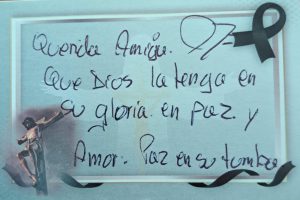 Querida Amiga.
Que Dios la tenga en
su gloria en paz y
Amor. Paz en su tumba